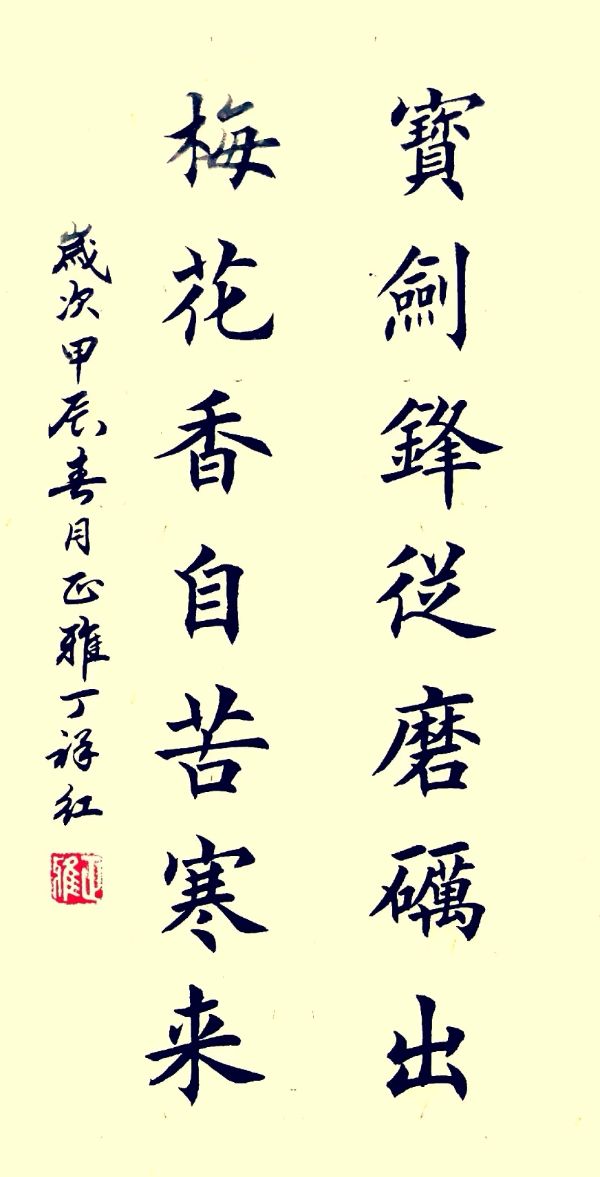 寶劍鋒從磨礪出
梅花香自苦寒来
歲次甲辰春月正雅丁祥红
正雅